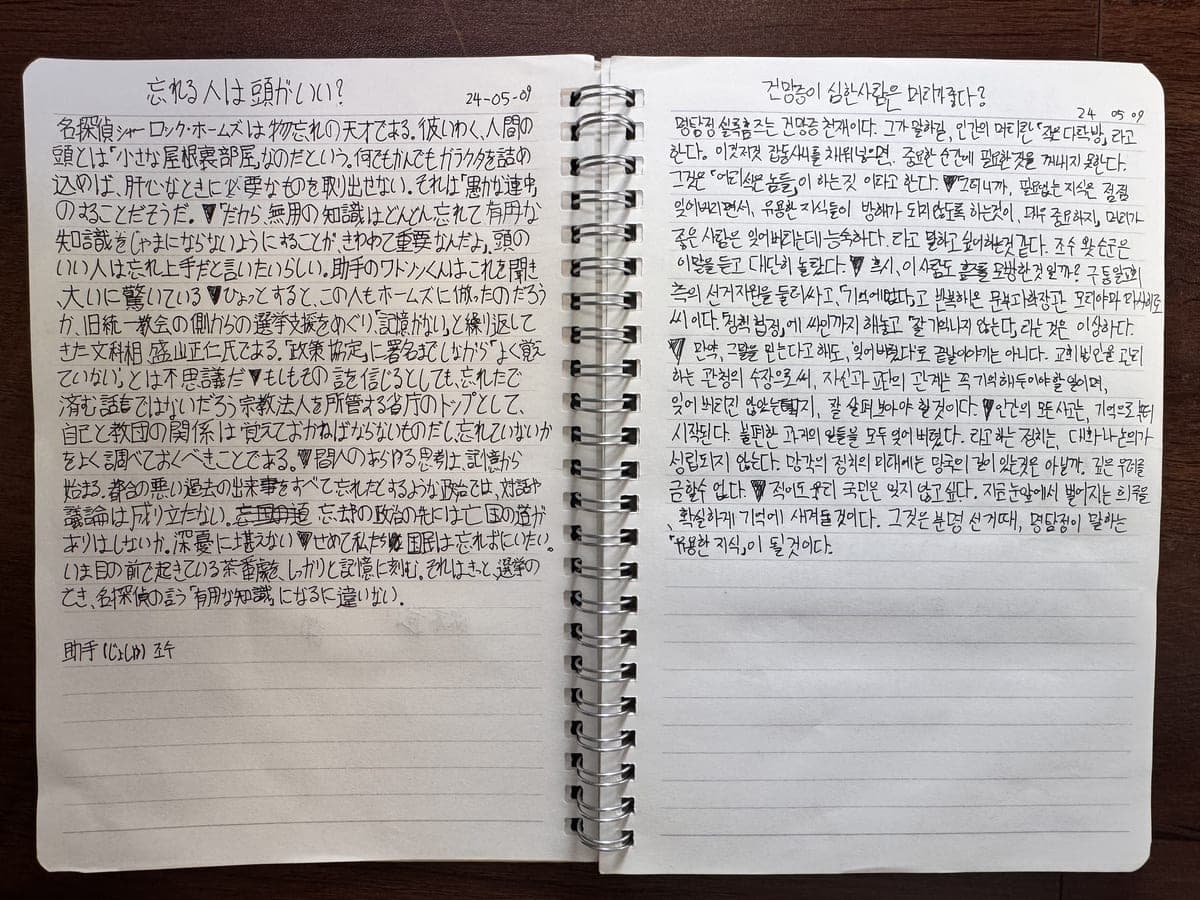 忘れる人は頭がいい?
24-05-09
名探偵シャーロック・ホームズは物忘れの天才である。彼いわく、人間の
頭とは「小さな屋根裏部屋」なのだという。何でもかんでもガラクタを詰め
込めば、肝心なときに必要なものを取り出せない。それは「愚かな連中」
のすることだそうだ。▼「だから、無用の知識はどんどん忘れて有用な
知識をじゃまにならないようにすることが、きわめて重要なんだよ」頭の
いい人は忘れ上手だと言いたいらしい。助手のワトソンくんは、これを聞き
、大いに驚いている▼ひょっとすると、この人もホームズに倣ったのだろう
か、旧統一教会の側からの選挙支援をめぐり、「記憶がない」と繰り返して
きた文科相 盛山正仁氏である。「政策協定」に署名までしながら「よく覚え
ていない」とは不思議だ▼もしもその話を信じるとしても、忘れたで
済む話ではないだろう宗教法人を所管する省庁のトップとして、
自己と教団の関係は覚えておかねばならないものだし、忘れていないか
をよく調べておくべきことである。▼人間のあらゆる思考は、記憶から
始まる。都合の悪い過去の出来事をすべて忘れたとするような政治では、対話や
議論は成り立たない。忘却の政治の先には亡国の道が
ありはしないか。深憂に堪えない▼せめて私たち国民は忘れずにいたい。
いま目の前で起きている茶番劇を、しっかりと記憶に刻む。それはきっと、選挙の
とき、名探偵の言う「有用な知識」になるに違いない.
助手(じょしゅ) 조수
건망증이 심한사람은 머리가좋다?
24 05 09
명탐정 셜록홈즈는 건망증 천재이다. 그가 말하길, 인간의 머리란 「작은 다락방」라고
한다. 이것저것 잡동사니를 채워넣으면, 중요한 순간에 필요한것을 꺼내지 못한다.
그것은 「어리석은 놈들」이 하는짓 이라고 한다. ▼「그러니까, 필요없는 지식은 점점
잊어버리면서, 유용한 지식들이 방해가 되지않도록 하는것이, 매우 중요하지」 머리가
좋은 사람은 잊어버리는데 능숙하다. 라고 말하고 싶어하는것 같다. 조수 왓슨군은
이말을 듣고 대단히 놀랐다. ▼ 혹시, 이 사람도 홈즈를 모방한것 일까? 구 통일교회
측의 선거지원을 둘러싸고, 「기억에없다」고 반복해온 문부과학장관 모리야마 마사히로
씨 이다. 「정책협정」에 싸인까지 해놓고 「잘 기억나지 않는다」라는 것은 이상하다.
▼ 만약, 그말을 믿는다고 해도, 잊어버렸다로 끝날이야기는 아니다. 교회 법인을 관리
하는 관청의 수장으로써, 자신과 교단의 관계는 꼭 기억해두어야할 일이며,
잊어 버리진 않았는지, 잘 살펴보아야 할것이다. ▼인간의 모든 사고는, 기억으로부터
시작된다. 불편한 과거의 일들을 모두 잊어 버렸다. 라고하는 정치는, 대화나 논의가
성립되지 않는다. 망각의 정치의 미래에는 망국의 길이 있는것은 아닐까. 깊은 우려를
금할수 없다. ▼ 적어도 우리 국민은 잊지 않고 싶다. 지금 눈앞에서 벌어지는 희극을
, 확실하게 기억에 새겨둘것이다. 그것은 분명 선거때, 명탐정이 말하는
「유용한 지식」이 될것이다.